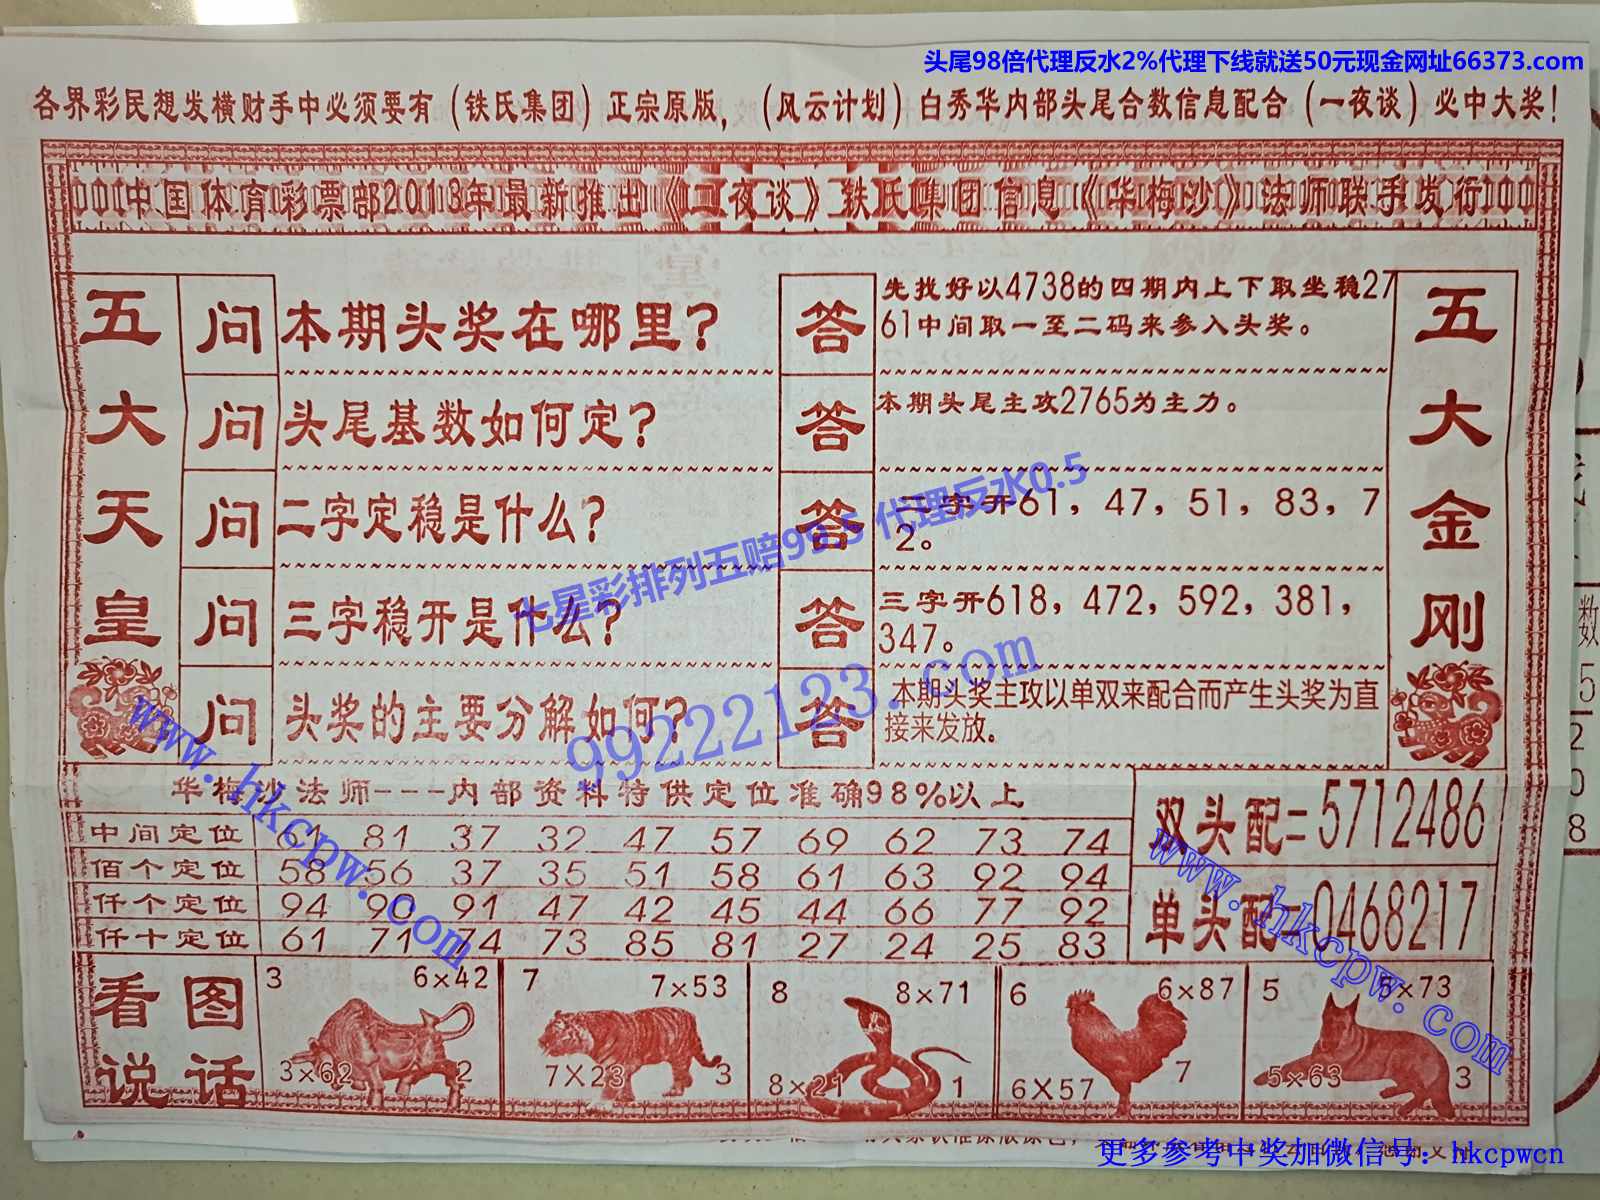 头尾98倍代理反水2%代理下线就送50元现金网址66373.com
各界彩民想发横财手中必须要有（铁氏集团）正宗原版，（风云计划）白秀华内部头尾合数信息配合（一夜谈）必中大奖！
中国体育彩票部2013年最新推出《一夜谈》铁氏集团信息《华梅沙》法师联手发行
五大天皇
问 本期头奖在哪里？
答 先找好以4738的四期内上下取坐稳27
61中间取一至二码来参入头奖。
问 头尾基数如何定？
答 本期头尾主攻2765为主力。
问 二字定稳是什么？
答 二字开61，47，51，83，7
2。
问 三字稳开是什么？
答 三字开618，472，592，381，
347。
问 头奖的主要分解如何？
答 本期头奖主攻以单双来配合而产生头奖为直
接来发放。
五大金刚
七星彩排列五赔99.5 代理反水0.5
99222123.com
www.hkcpw.com
华梅沙法师---内部资料特供定位准确98%以上
中间定位 61 81 37 32 47 57 69 62 73 74
佰个定位 58 56 37 35 51 58 61 63 92 94
仟个定位 94 90 91 47 42 45 44 66 77 92
仟十定位 61 71 74 73 85 81 27 24 25 83
双头配=5712486
单头配=0468217
www.hkcpw.com
看图
说话
3 6×42
3×62 2
7 7×53
7×23 3
8 8×71
8×21 1
6 6×87
6×57 7
5 5×73
5×63 3
数
5
2
0
8
更多参考中奖加微信号：hkcpwcn